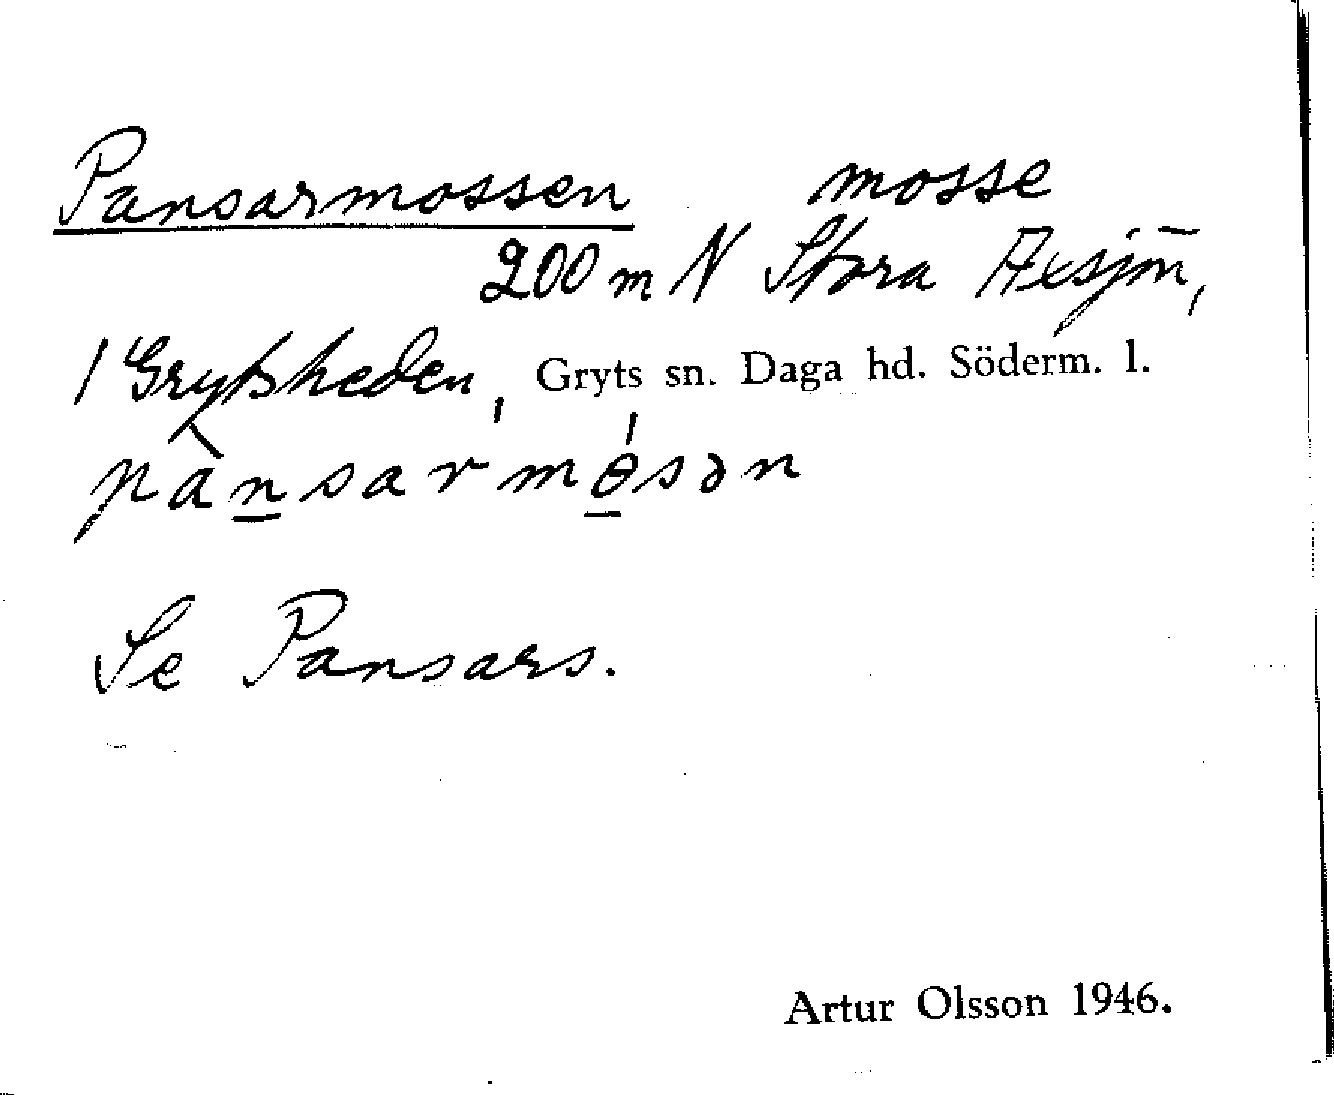 Pansarmossen mosse
200 m N Stora Axsjön,
/ Grytsheden, Gryts sn. Daga hd. Söderm. l.
pànsarmɵ́sən
Se Pansars.
Artur Olsson 1946.